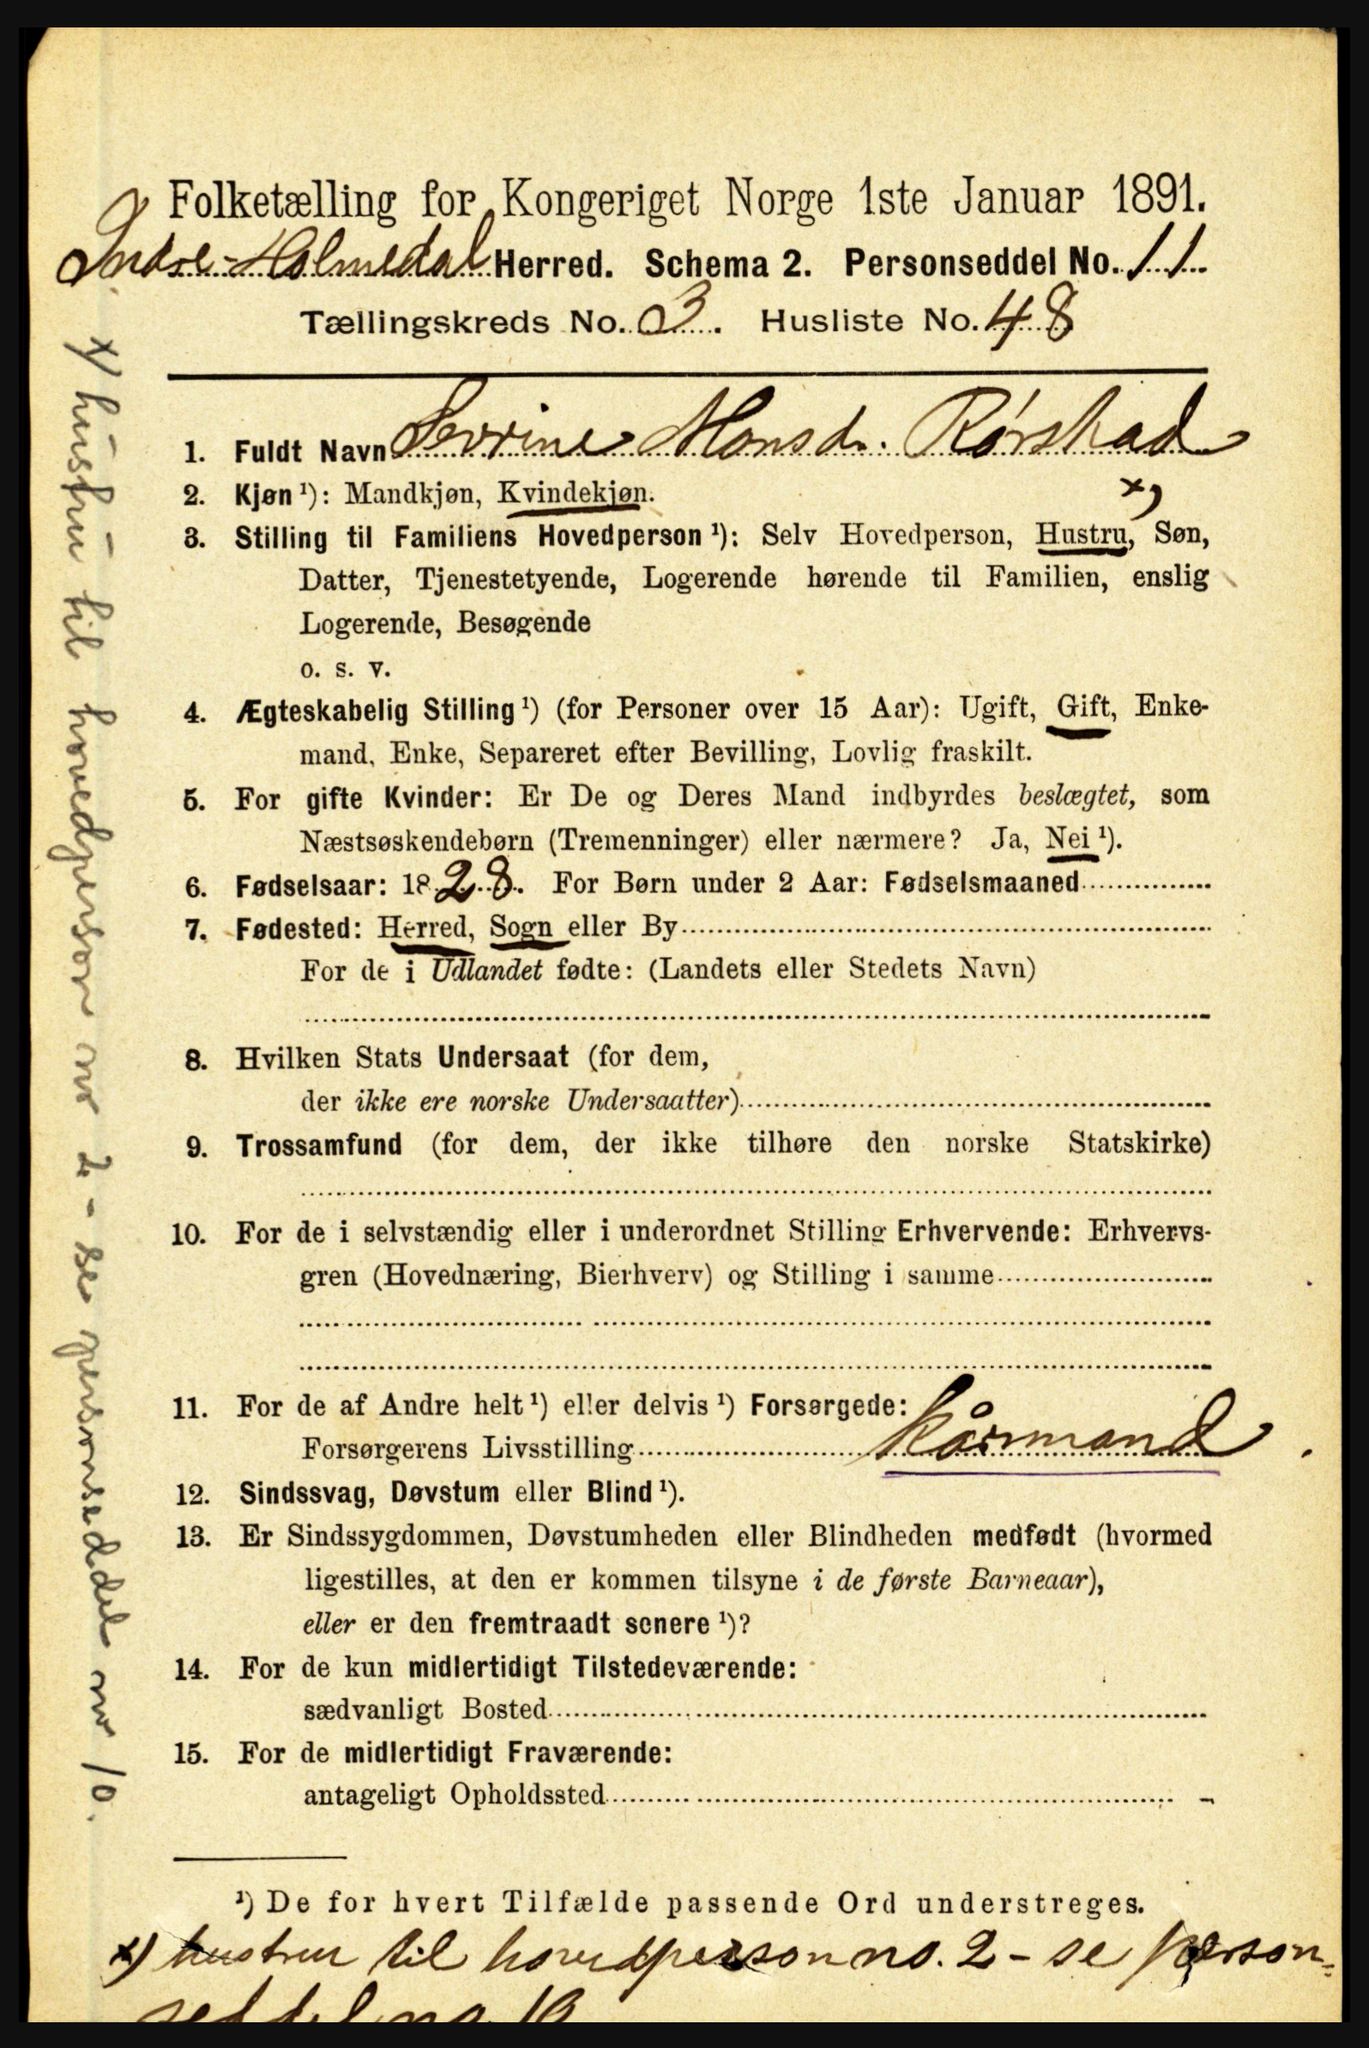 Folketælling for Kongeriget Norge 1ste Januar 1891.
Indre Holmedal Herred. Schema 2. Personseddel No. 11
Tællingskreds No. 3. Husliste No. 48
1. Fuldt Navn Sevrine Monsdr. Rørstad
2. Kjøn ¹): Mandkjøn, Kvindekjøn.
x)
3. Stilling til Familiens Hovedperson ¹): Selv Hovedperson, Hustru, Søn,
Datter, Tjenestetyende, Logerende hørende til Familien, enslig
Logerende, Besøgende
o. s. v.
4. Ægteskabelig Stilling ¹) (for Personer over 15 Aar): Ugift, Gift, Enke-
mand, Enke, Separeret efter Bevilling, Lovlig fraskilt.
5. For gifte Kvinder: Er De og Deres Mand indbyrdes beslægtet, som
Næstsøskendebørn (Tremenninger) eller nærmere? Ja, Nei ¹).
6. Fødselsaar: 1828. For Børn under 2 Aar: Fødselsmaaned
7. Fødested: Herred, Sogn eller By
For de i Udlandet fødte: (Landets eller Stedets Navn)
8. Hvilken Stats Undersaat (for dem,
der ikke ere norske Undersaatter)
9. Trossamfund (for dem, der ikke tilhøre den norske Statskirke)
10. For de i selvstændig eller i underordnet Stilling Erhvervende: Erhvervs-
gren (Hovednæring, Bierhverv) og Stilling i samme
11. For de af Andre helt ¹) eller delvis ¹) Forsørgede:
Forsørgerens Livsstilling kårmand
12. Sindssvag, Døvstum eller Blind ¹).
13. Er Sindssygdommen, Døvstumheden eller Blindheden medfødt (hvormed
ligestilles, at den er kommen tilsyne i de første Barneaar),
eller er den fremtraadt senere ¹)?
14. For de kun midlertidigt Tilstedeværende:
sædvanligt Bosted
15. For de midlertidigt Fraværende:
antageligt Opholdssted
¹) De for hvert Tilfælde passende Ord understreges.
x) hustru til hovedperson no. 2 - se person=
seddel no. 10
x) hustru til hovedperson no 2 - se personseddel no 10.